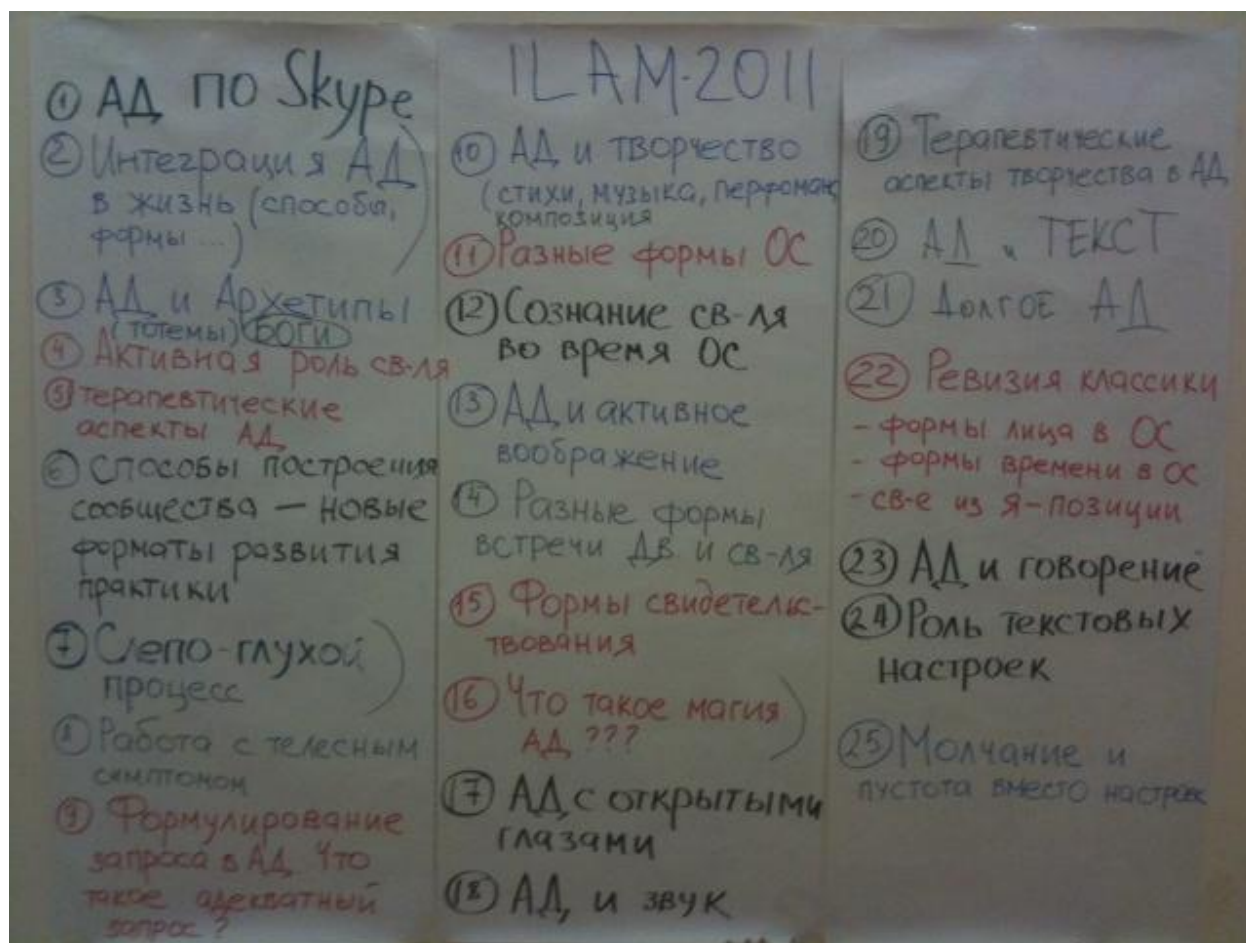 ① АД по Skype
② Интеграция АД
в жизнь (способы,
формы ...)
③ АД и Архетипы
(тотемы) БОГИ
④ Активная роль св-ля
⑤ терапевтические
аспекты АД
⑥ Способы построения
сообщества — новые
форматы развития
практики
⑦ Слепо-глухой
процесс
⑧ Работа с телесным
симптомом
⑨ Формулирование
запроса в АД. Что
такое адекватный
запрос?
ILAM-2011
⑩ АД и творчество
(стихи, музыка, перфоманс
композиция
⑪ Разные формы ОС
⑫ Сознание св-ля
во время ОС
⑬ АД и активное
воображение
⑭ Разные формы
встречи ДВ и св-ля
⑮ Формы свидетельс-
твования
⑯ Что такое магия
АД ???
⑰ АД с открытыми
глазами
⑱ АД и звук
⑲ Терапевтические
аспекты творчества в АД
⑳ АД и ТЕКСТ
㉑ Долгое АД
㉒ Ревизия классики
- формы лица в ОС
- формы времени в ОС
- св-е из Я-позиции
㉓ АД и говорение
㉔ Роль текстовых
настроек
㉕ Молчание и
пустота вместо настроек